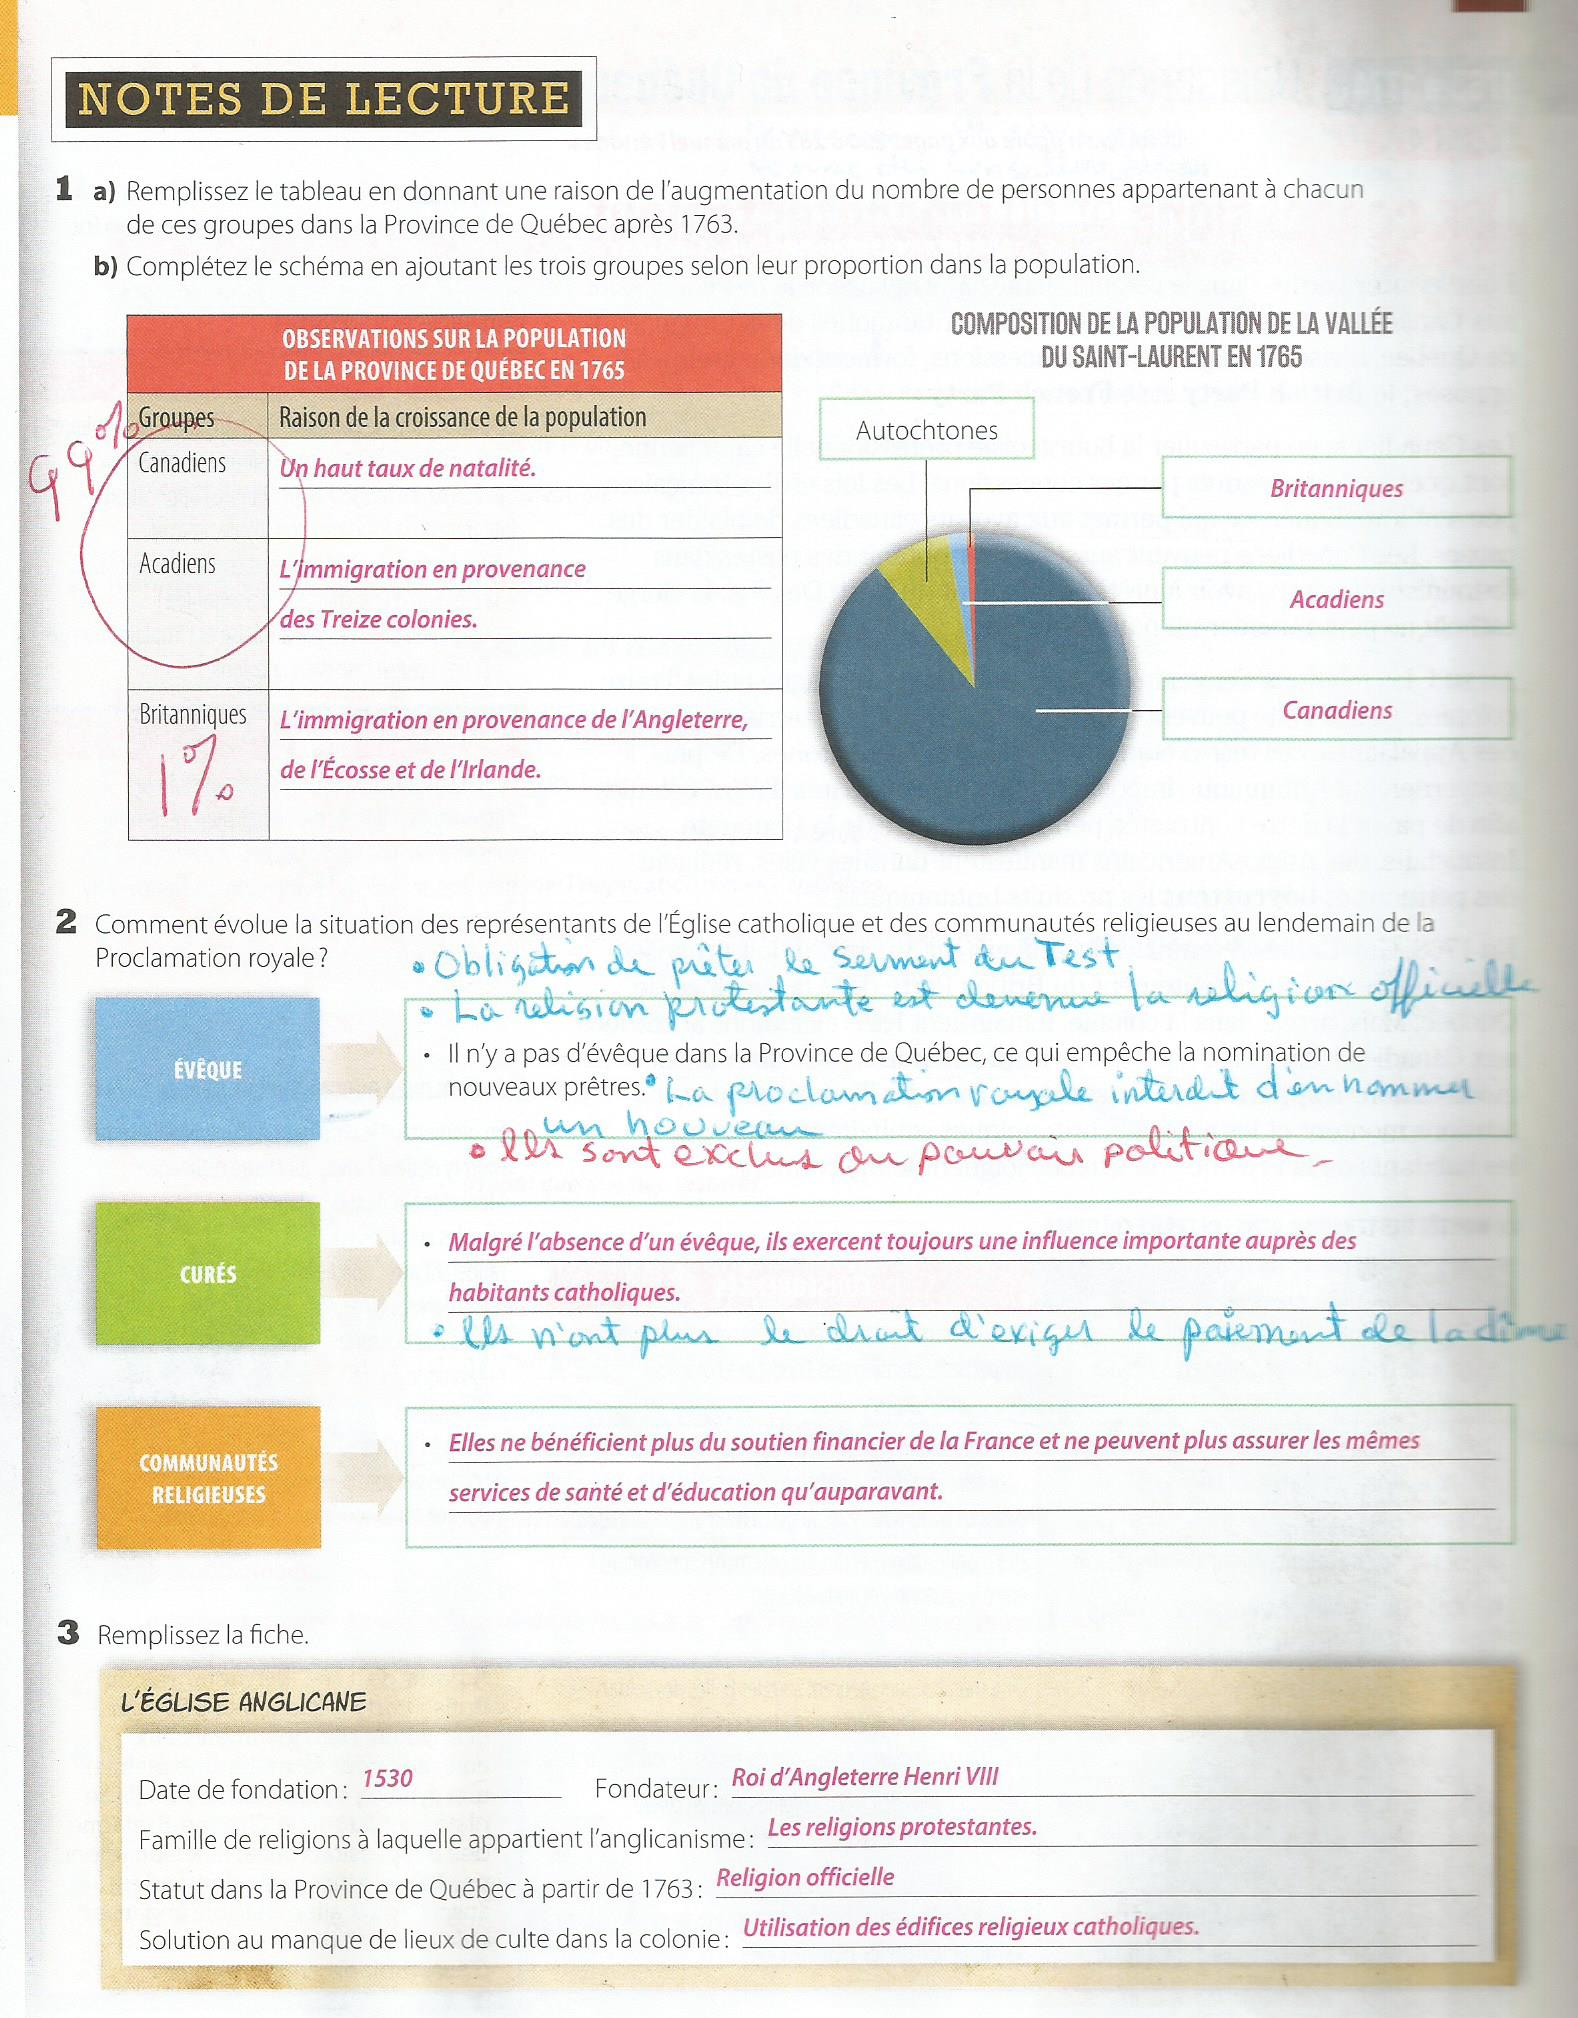 NOTES DE LECTURE
1 a) Remplissez le tableau en donnant une raison de l'augmentation du nombre de personnes appartenant à chacun
de ces groupes dans la Province de Québec après 1763.
b) Complétez le schéma en ajoutant les trois groupes selon leur proportion dans la population.
OBSERVATIONS SUR LA POPULATION
DE LA PROVINCE DE QUÉBEC EN 1765
Groupes
Raison de la croissance de la population
99%
Canadiens
Un haut taux de natalité.
Acadiens
L'immigration en provenance
des Treize colonies.
Britanniques
1%
L'immigration en provenance de l'Angleterre,
de l'Écosse et de l'Irlande.
COMPOSITION DE LA POPULATION DE LA VALLÉE
DU SAINT-LAURENT EN 1765
Autochtones
Britanniques
Acadiens
Canadiens
2 Comment évolue la situation des représentants de l'Église catholique et des communautés religieuses au lendemain de la
Proclamation royale ?
• Obligation de prêter le serment du Test
• La religion protestante est devenue la religion officielle
ÉVÊQUE
• Il n'y a pas d'évêque dans la Province de Québec, ce qui empêche la nomination de
nouveaux prêtres. • La proclamation royale interdit d'en nommer
un nouveau
• Ils sont exclus du pouvoir politique
CURÉS
• Malgré l'absence d'un évêque, ils exercent toujours une influence importante auprès des
habitants catholiques.
• Ils n'ont plus le droit d'exiger le paiement de la dîme
COMMUNAUTÉS
RELIGIEUSES
• Elles ne bénéficient plus du soutien financier de la France et ne peuvent plus assurer les mêmes
services de santé et d'éducation qu'auparavant.
3 Remplissez la fiche.
L'ÉGLISE ANGLICANE
Date de fondation : 1530 Fondateur : Roi d'Angleterre Henri VIII
Famille de religions à laquelle appartient l'anglicanisme : Les religions protestantes.
Statut dans la Province de Québec à partir de 1763 : Religion officielle
Solution au manque de lieux de culte dans la colonie : Utilisation des édifices religieux catholiques.